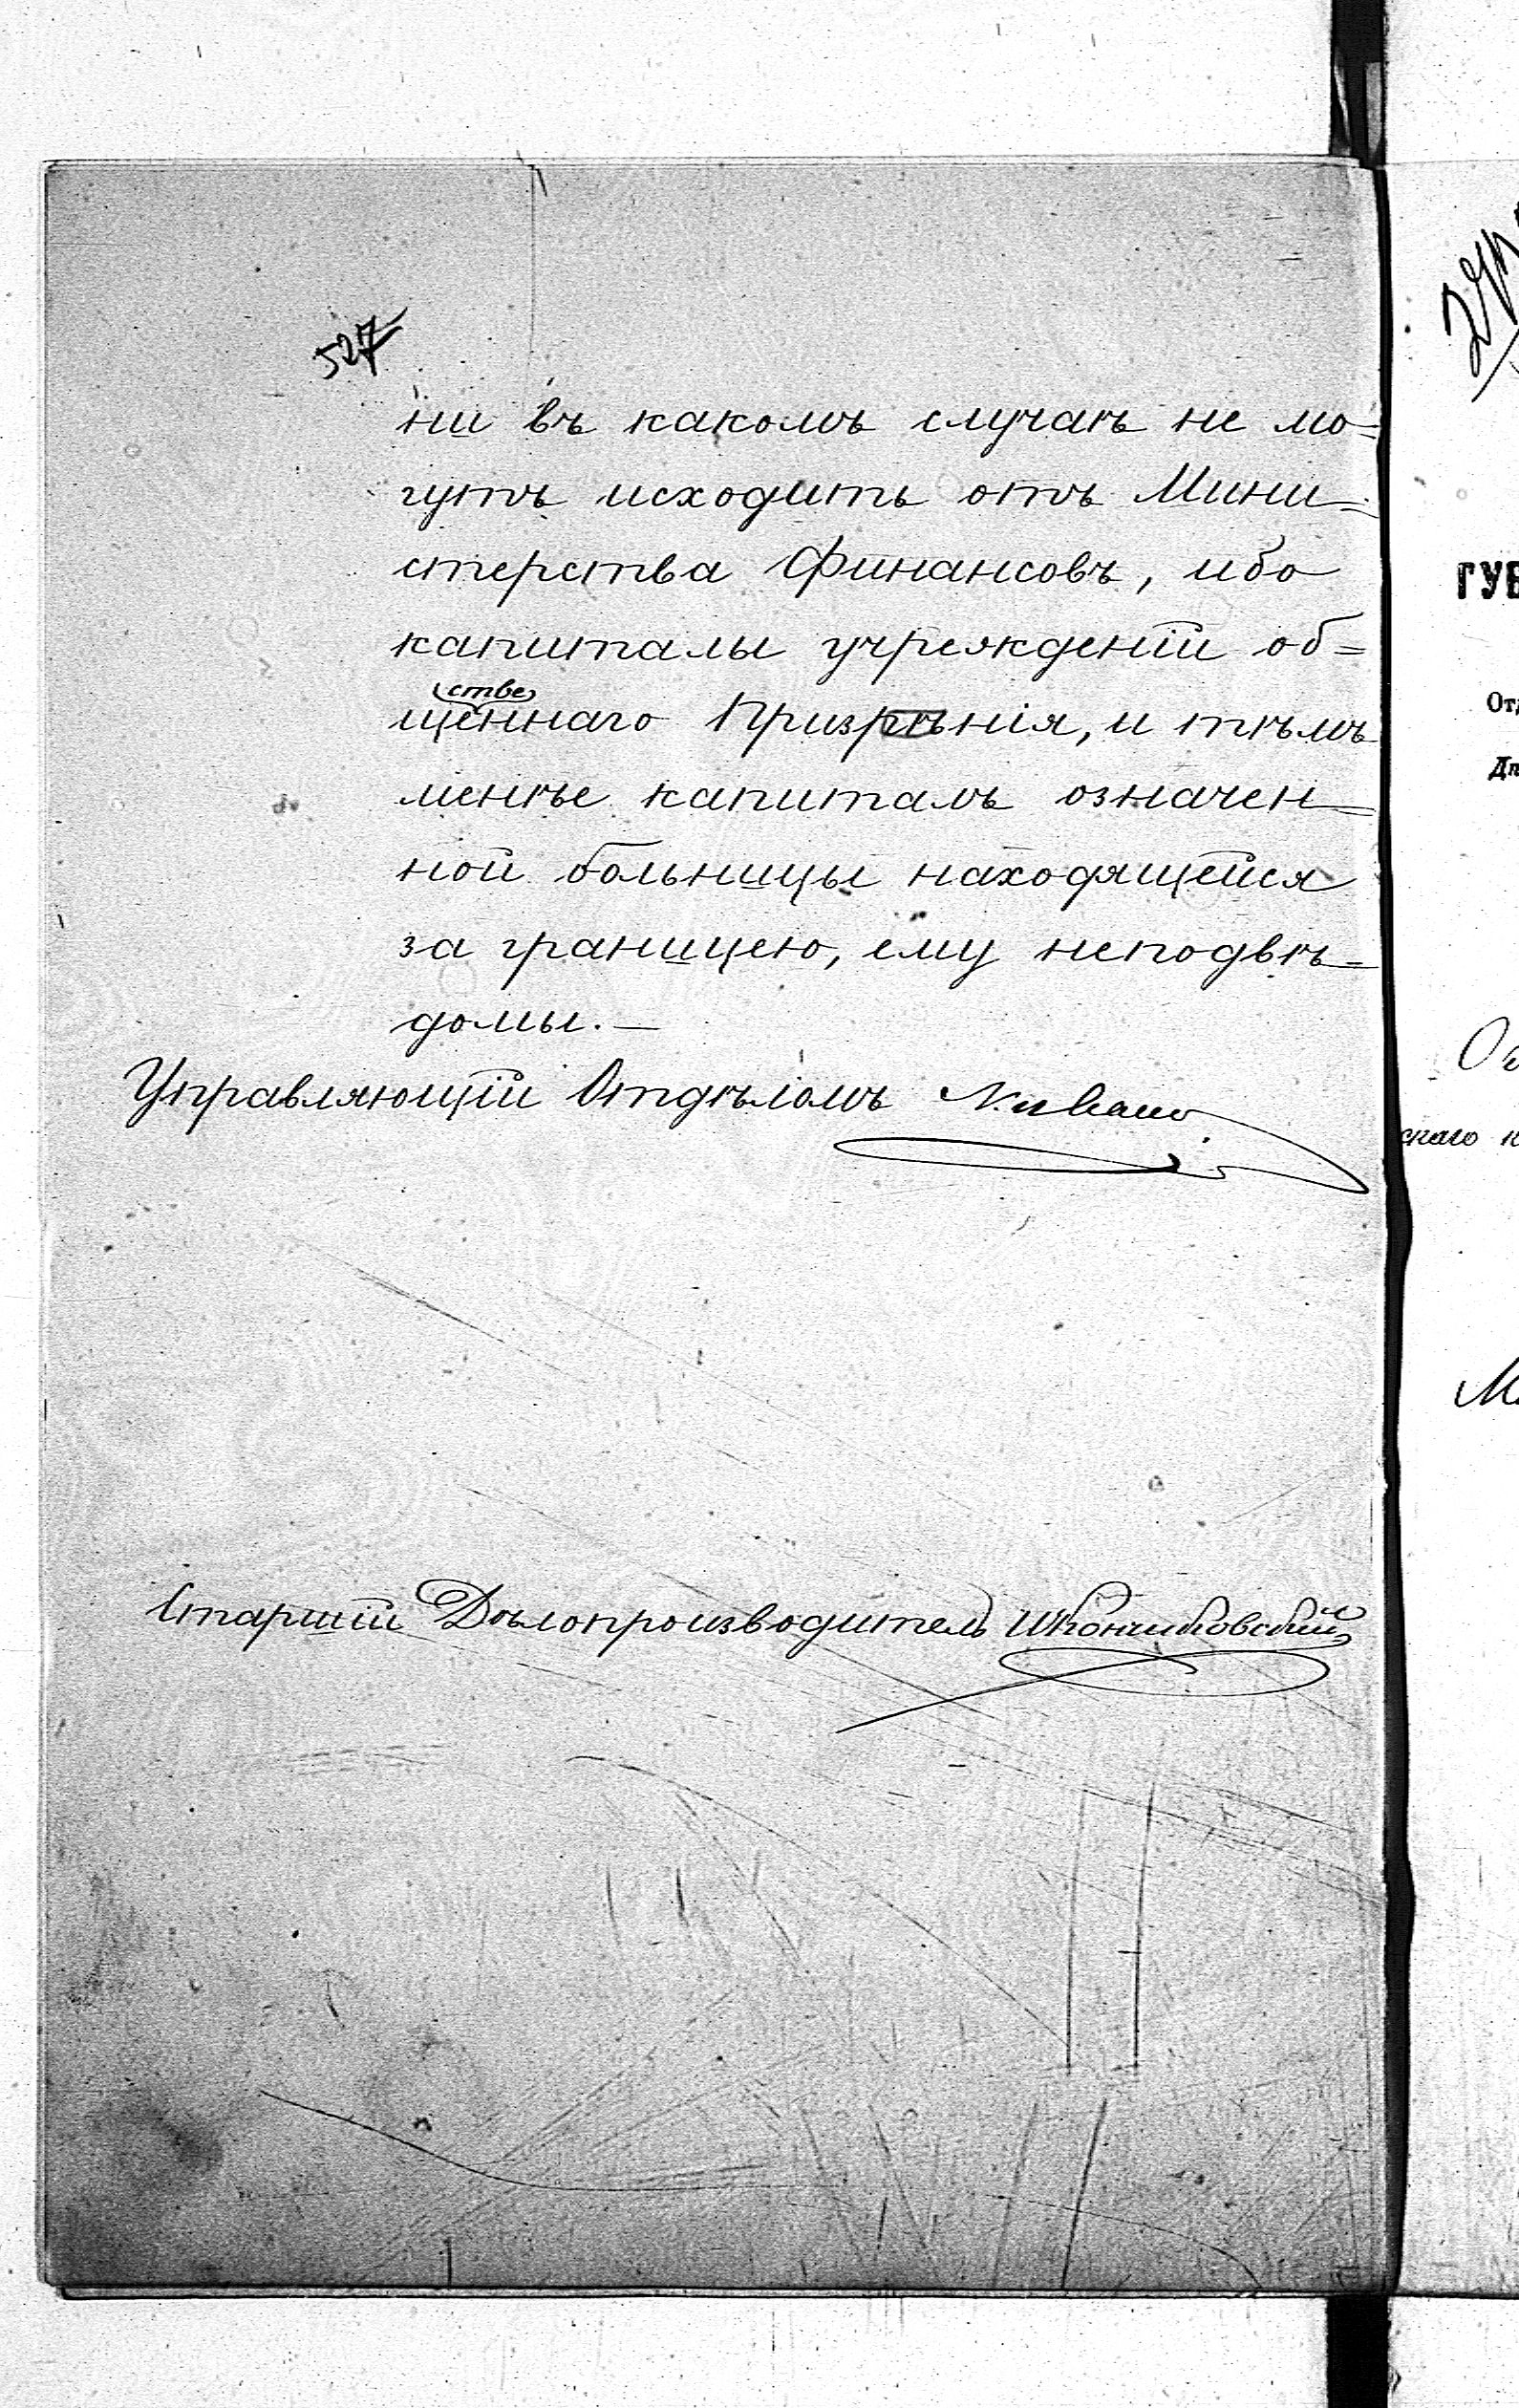 527
ни въ какомъ случаѣ не мо=
гутъ исходить отъ Мини=
стерства Финансовъ, ибо
капиталы учрежденій об=
стве
щеннаго Призрѣнія, и тѣмъ
менѣе капиталъ означен=
ной больницы находящейся
за границею, ему неподвѣ=
домы.—
Управляющій Отдѣломъ
Старшій Дѣлопроизводитель
ГУБ
От
Дѣ
скаго